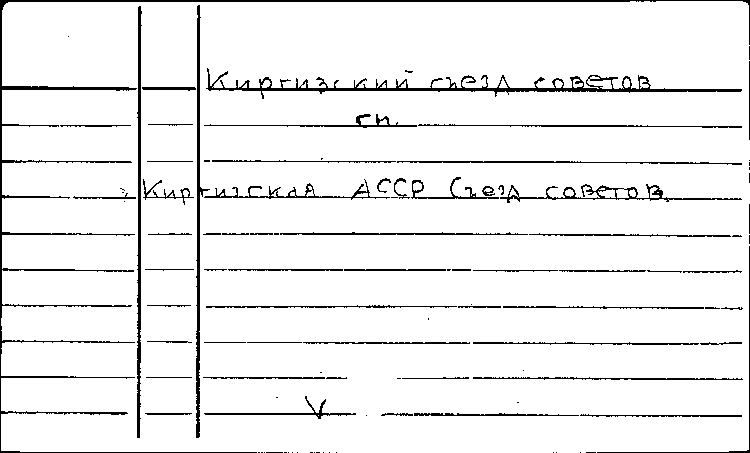 Киргизский съезд советов
см.
Киргизская АССР Съезд советов.
V